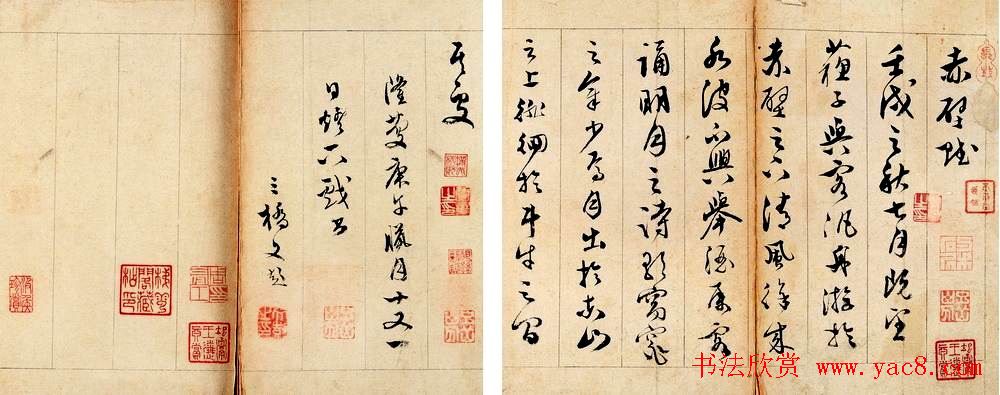 赤壁賦
壬戌之秋七月既望
蘇子與客汎舟游於
赤壁之下清風徐來
水波不興舉酒屬客
誦明月之詩歌窈窕
之章少焉月出於東山
之上徘徊於斗牛之間
隆慶庚午臘月十又一
日燈下戲書
三橋文彭
书法欣赏 www.yac8.com